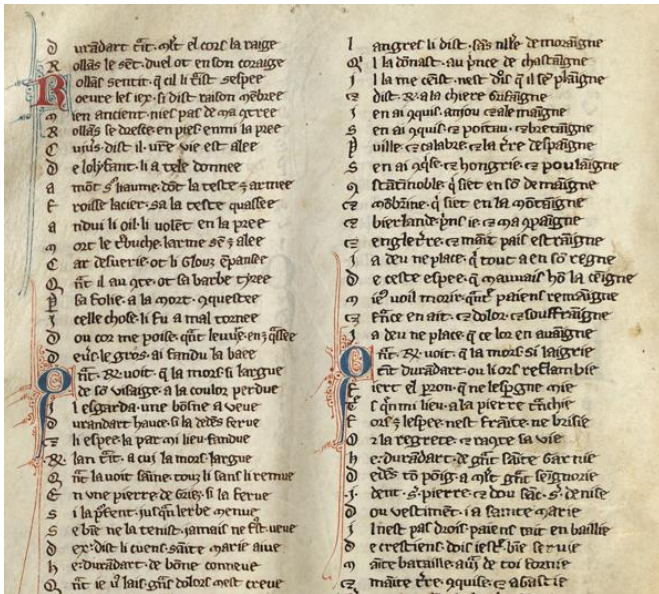 D urandart t̄it. ml̄t el cors la raige
R ollās le sēt. duel ot en son coraige
R ollās sentit. q̄ cil li t̄ist sespee
O euvre les iex. si dist raison mēbree
M ien ancient. nies pas de ma 9tree
R ollās se dresce en pies enmi la pree
C uiūs. dist il. v̄re vie est alee
D e lolyfant. li a tele donnee
A mōt s̄ haume. dōt la teste ꝫ armee
F roisse lacier. sa la teste quassee
A ndui li oil. li volēt en la pree
M ort le t̄buche. larme sē ꝫ alee
C ar desverie. ot li glouz ēpansee
Q n̄t il au 9te. ot sa barbe tyree
P̄ sa folie. a la mort. 9questee
I celle chose. li fu a mal tornee
D ou cor me poise. q̄nt
D eū le gros. ai fandu la baee
Q n̄t. R. voit. q̄ la mors. si largue
D e sō visaige. a la coulor perdue
I l esgarda. une bōne a veue
D urandart hauce. si la dedēs ferue
⁊ li espee. la par mi lieu fandue
R. lan t̄it. a cui la mort. largue
Q n̄t la voit saīne. touz li sans li remue
E n vne pierre de griez. si la ferue
I la p̄fent. jusqu lerbe menue
S e biē ne la tenist. jamais ne fut veue
D ex. dist li cuens. saīte marie aiue
H e. durādart. de bōne conneue
Q n̄t ie v̄ lais. grās dolors mest creue
L angres li dist. sās nille de moraīgne
Q̄ l la dōnast. au p̄nce de chastaīgne
I l la me cēist. nest dis̄ q̄ il se plaīgne
⁊ dist. R. a la chiere
I en ai 9quis. anjou ⁊ alemaīgne
S en ai 9quis. ⁊ poitau. ⁊ bretaīgne
P̄ uille. ⁊ calabre. ⁊ la t̄re despaīgne
S en ai 9q̄se. ⁊ hongrie. ⁊ poulaīgne
9 stātinoble. q̄ siet en sō demaīgne
⁊ mōbrine. q̄ siet en la mōtaīgne
⁊ bierlande. p̄ns ie. ⁊ ma 9paīgne
⁊ englet̄re. ⁊ maīt pais estraīgne
I a deu ne place. q̄ tout a en sō regne
D e ceste espee. q̄ mauvais hō la ceīgne
M ieꝰ voil morir. q̄nt paiens remaīgne
⁊ f̄ace en ait. ⁊ dolor. ⁊ souffraīgne
I a deu ne place. q̄ ce lor en avaīgne
Q n̄t. R. voit. q̄ la mors. si laigrie
T̄it durādart. ou li ors reflambie
F iert el perron. q̄ ne lespgne mie
T̄ s q̄nmi lieu. a la pierre t̄nchie
F ors ꝫ lespee. nest fraīte. ne brisie
O r la regrete. ⁊ ra9te sa vie
H e. durādart. de gn̄t saīte garnie
D edēs tō poīg. a ml̄t gn̄t seīgnorie
.I. dent. s̄. pierre. ⁊ dou sāc. s̄. denise
D ou vestimēt. i a sainte marie
I l nest pas drois. paiens tait en baillie
D e crestiens. dois iestr̄. biē servie
M aīte bataille. aur̄. de toi fornie
⁊ maīte t̄re. 9quise. ⁊ agastie